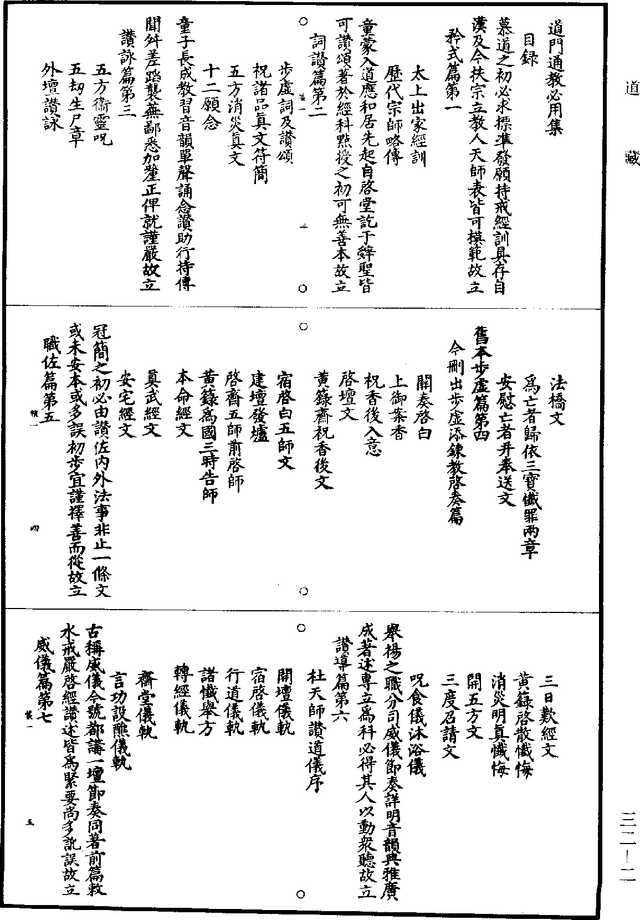 道藏
道門通教必用集
目録
慕道之初必求標準發願持戒經訓具存自
漢及今扶宗立教人天師表皆可模範故立
矜式篇第一
太上出家經訓
歷代宗師略傳
童蒙入道應和居先起自啓堂訖于辤聖皆
可讃頌著於經科點授之初可無善本故立
詞讃篇第二
步虛詞及讃頌
祝諸品真文符簡
五方消災真文
十二願念
童子長成教習音韻單聲誦念讃助行持傳
聞舛差踏襲蕪鄙悉加釐正俾就謹嚴故立
讃詠篇第三
五方衛靈呪
五劫生尸章
外壇讃詠
法橋文
爲亡者歸依三寶懺罪兩章
安慰亡者并奉送文
舊本步虛篇第四
今刪出步虛添錬教啓奏篇
關奏啓白
上御案香
祝香後入意
啓壇文
黃籙齋祝香後文
宿啓白五師文
建壇發爐
啓齋五師前啓師
黃籙爲國三時告師
本命經文
真武經文
安宅經文
冠簡之初必由讃佐内外法事非止一條文
或未安本或多誤初步宜謹擇善而從故立
職佐篇第五
四
三日歎經文
黃籙啓散懺悔
消災明真懺悔
開五方文
三度召請文
呪食儀沐浴儀
舉揚之職分司威儀節奏詳明音韻典雅廣
成著述專立爲科必得其人以動衆聽故立
讃導篇第六
杜天師讃道儀序
開壇儀軌
宿啓儀軌
行道儀軌
諸懺舉方
轉經儀軌
齋堂儀軌
言功設醮儀軌
古稱威儀今號都講一壇節奏同著前篇敕
水戒嚴啓經讃述皆爲緊要尚多訛誤故立
威儀篇第七
五
三二—二